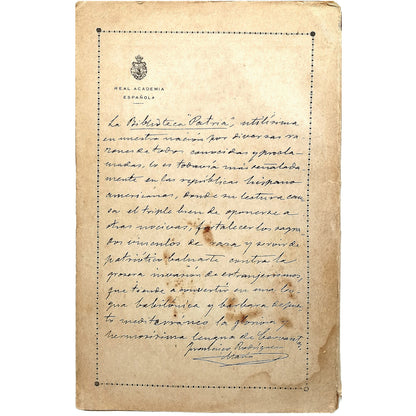 REAL ACADEMIA
ESPAÑOLA
La Biblioteca Patria, utilísima
en nuestra nación por diversas ra
zones de todos conocidas y procla
madas, lo es todavía más señalada
mente en las repúblicas hispano
americanas, donde su lectura cau
sa el triple bien de oponerse a
otras nocivas, fortalecer los sagra
dos vínculos de raza y servir de
patriótico baluarte contra la
grosera invasión de extranjerismos
que tiende a convertir en una len
gua babilónica y bárbara de
mediterráneo la gloriosa y
hermosísima lengua de Cervantes
Francisco Rodríguez
Marín